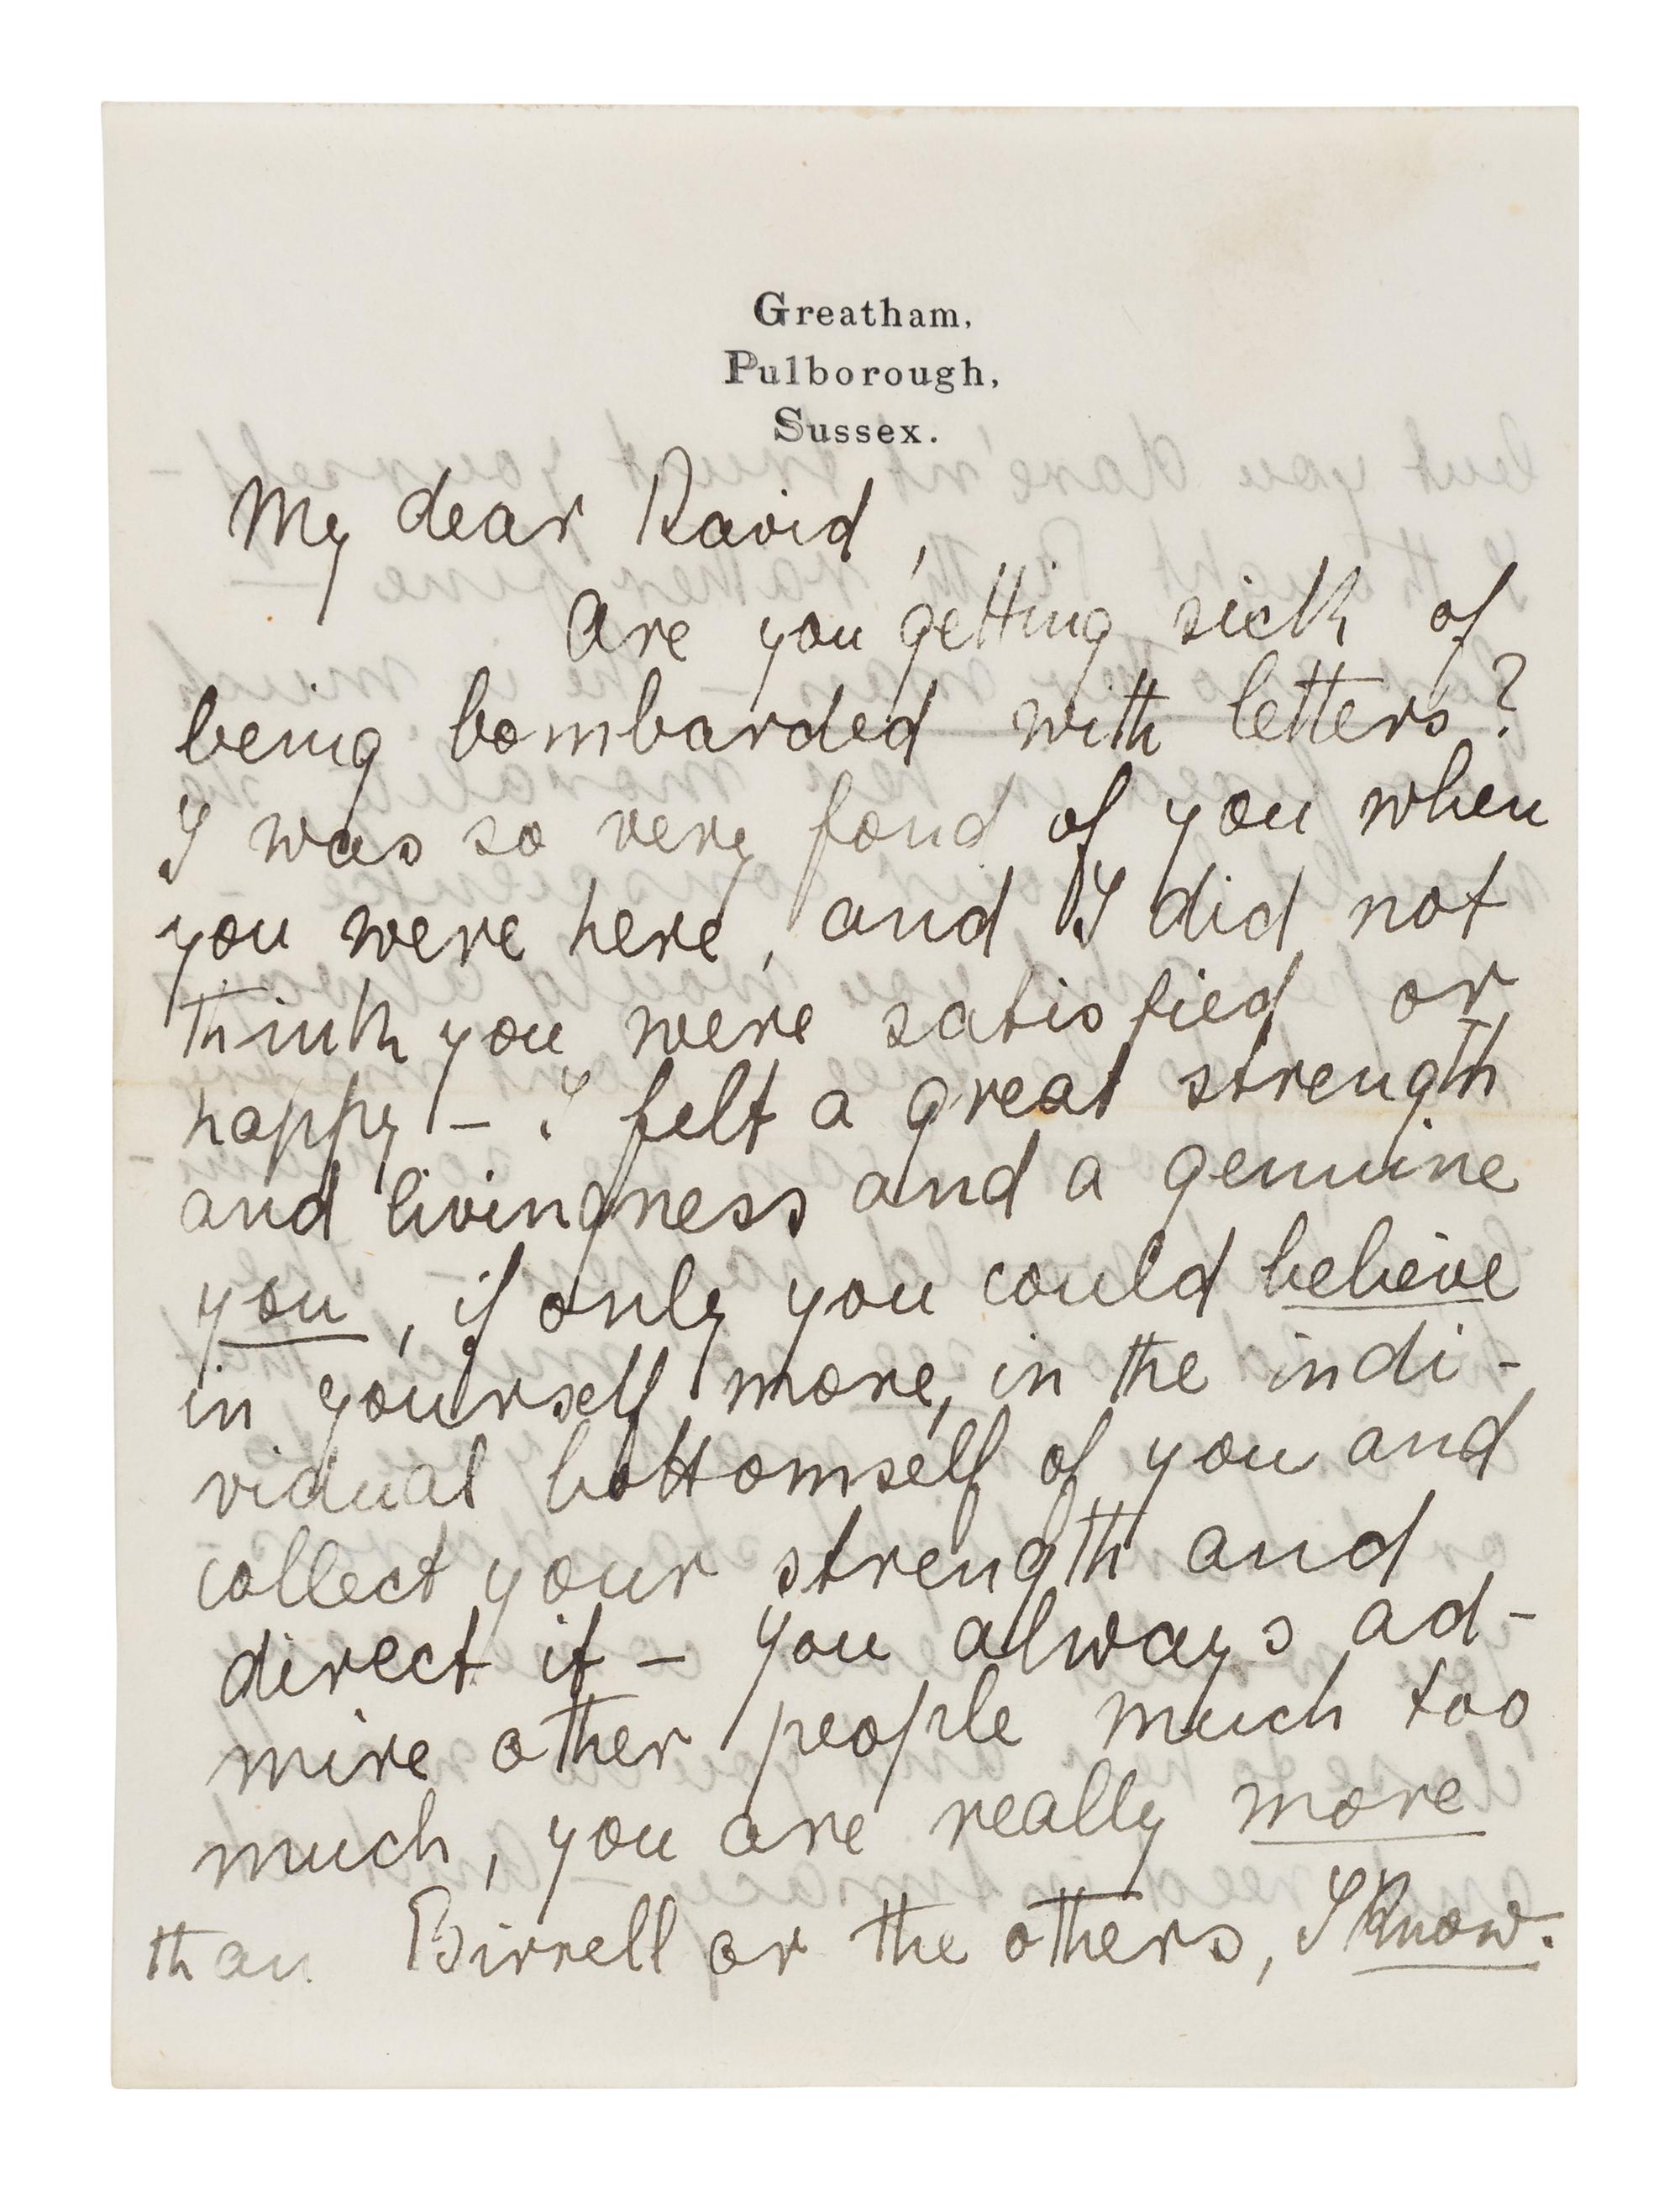 Greatham,
Pulborough,
Sussex.
My dear David,
Are you getting sick of
being bombarded with letters?
I was so very fond of you when
you were here, and I did not
think you were satisfied or
happy – I felt a great strength
and livingness and a genuine
you, if only you could believe
in yourself more, in the indi-
vidual bottomself of you and
collect your strength and
direct it – you always ad-
mire other people much too
much, you are really more
than Birrell or the others, I know.